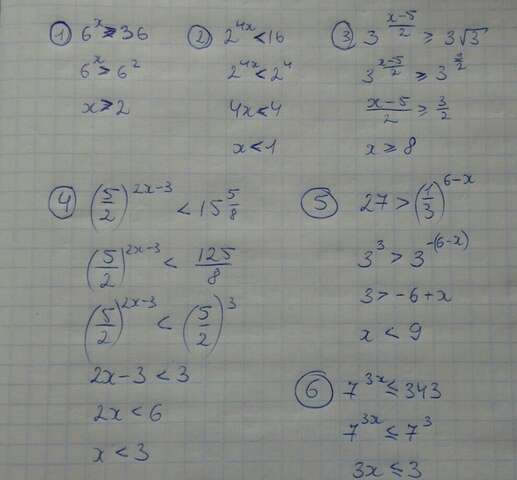 ① 6^x > 36
6^x > 6^2
x > 2
② 2^{4x} < 16
2^{4x} < 2^4
4x < 4
x < 1
③ 3^{\frac{x-5}{2}} ≥ 3√3
3^{\frac{x-5}{2}} ≥ 3^{\frac{3}{2}}
\frac{x-5}{2} ≥ \frac{3}{2}
x ≥ 8
④ (\frac{5}{2})^{2x-3} < 15\frac{5}{8}
(\frac{5}{2})^{2x-3} < \frac{125}{8}
(\frac{5}{2})^{2x-3} < (\frac{5}{2})^3
2x-3 < 3
2x < 6
x < 3
⑤ 27 > (\frac{1}{3})^{6-x}
3^3 > 3^{-(6-x)}
3 > -6+x
x < 9
⑥ 7^{3x} ≤ 343
7^{3x} ≤ 7^3
3x ≤ 3